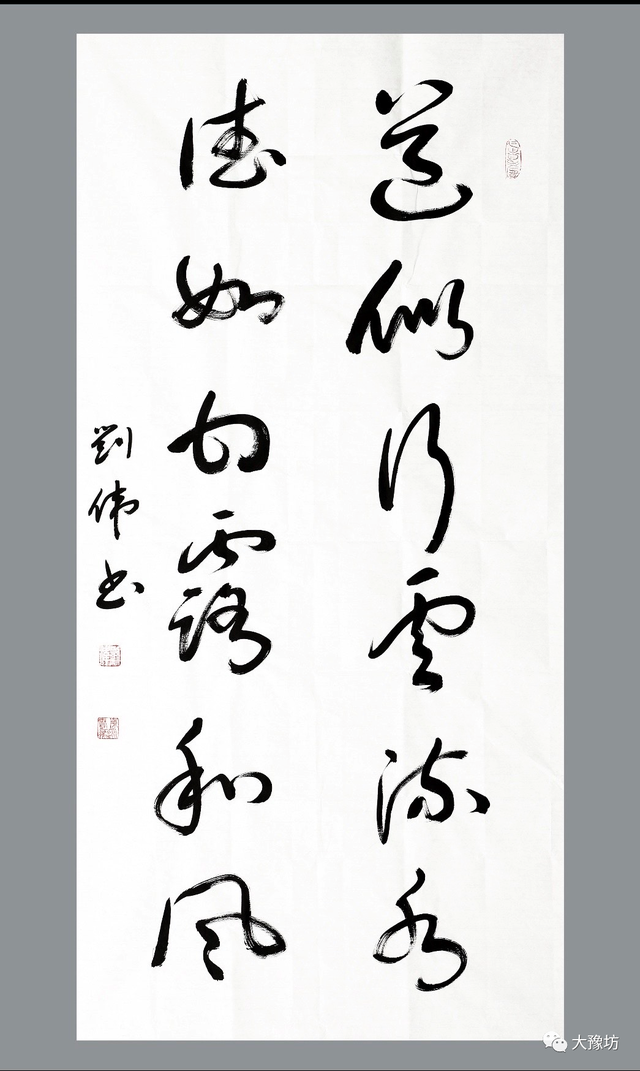 道似行雲流水
德如甘露和風
劉伟书
大豫坊